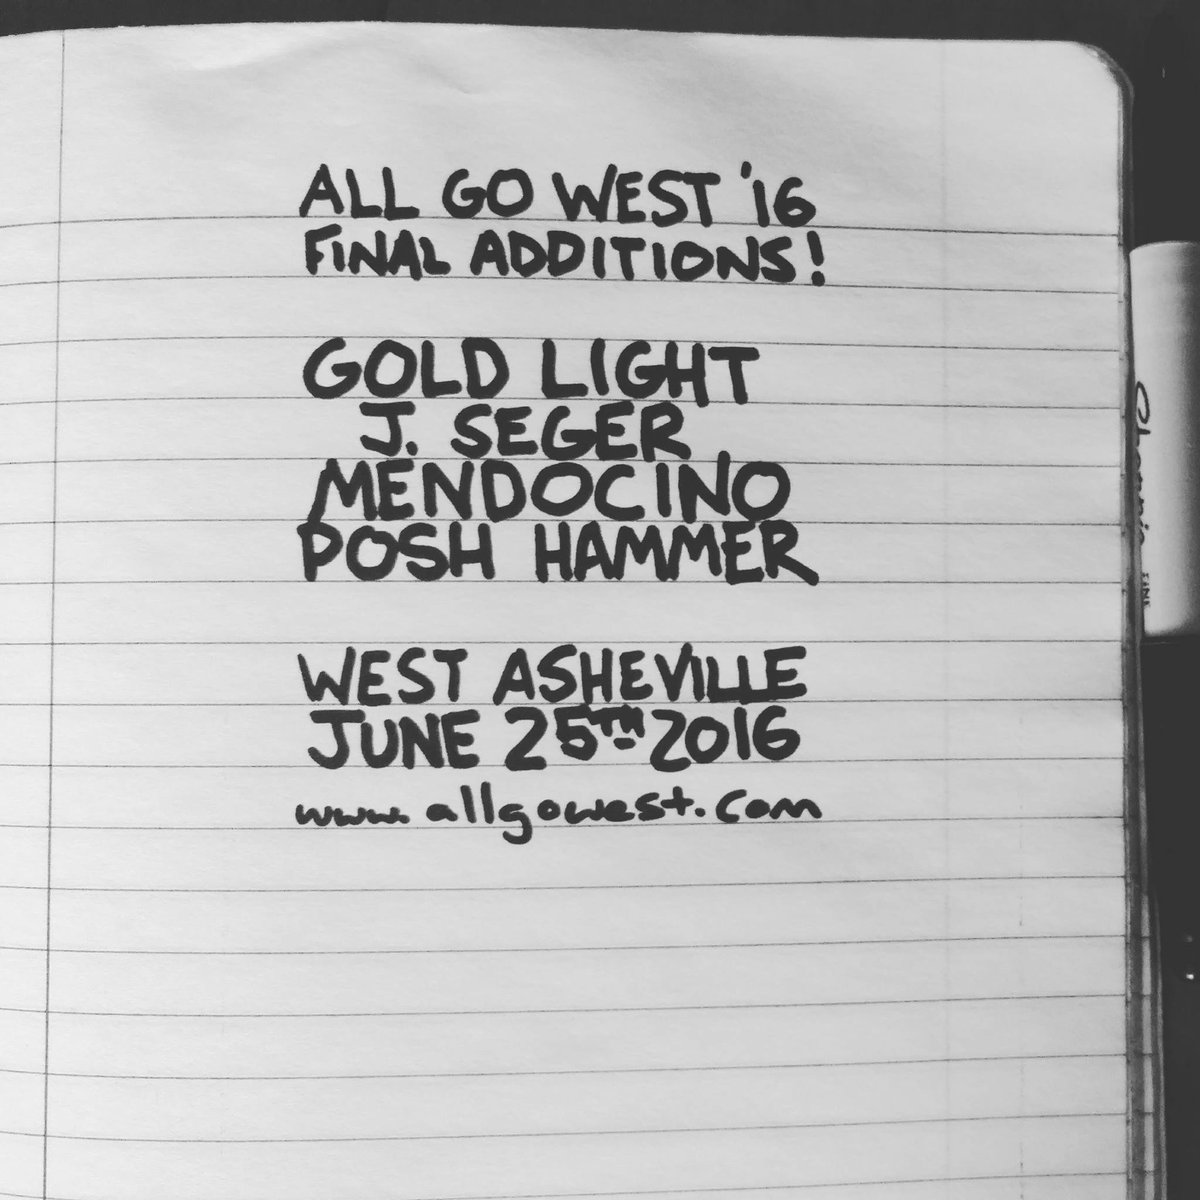 ALL GO WEST '16
FINAL ADDITIONS!
GOLD LIGHT
J. SEGER
MENDOCINO
POSH HAMMER
WEST ASHEVILLE
JUNE 25TH 2016
www.allgowest.com
Sharpie
FINE